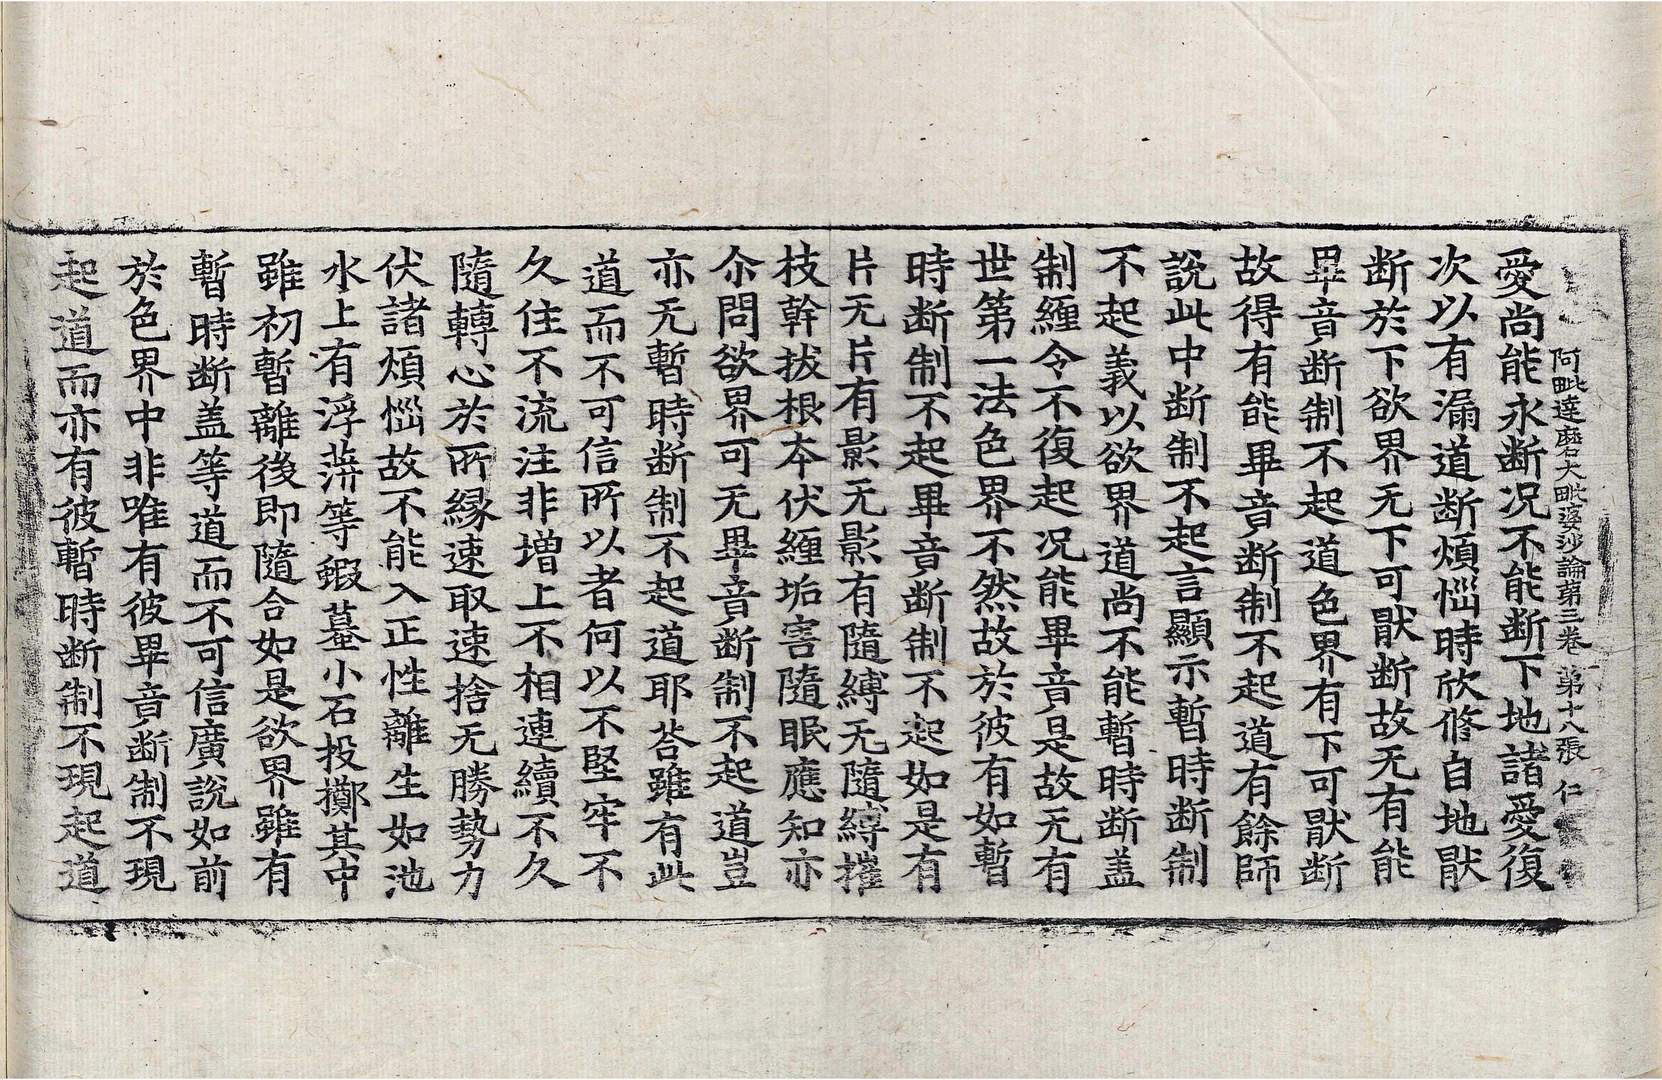 阿毗達磨大毗婆沙論第三卷 第十八張 仁
愛尚能永断况不能断下地諸愛復
次以有漏道断煩惱時欣修自地猒
断於下欲界无下可猒断故无有能
畢音断制不起道色界有下可猒断
故得有能畢音断制不起道有餘師
說此中断制不起言顯示暫時断制
不起義以欲界道尚不能暫時断盖
制纏令不復起况能畢音是故无有
世第一法色界不然故於彼有如暫
時断制不起畢音断制不起如是有
片无片有影无影有隨縛无隨縛摧
枝幹拔根本伏纏垢害隨眠應知亦
尒問欲界可无畢音断制不起道豈
亦无暫時断制不起道耶荅雖有此
道而不可信所以者何以不堅牢不
久住不流注非增上不相連續不久
隨轉心於所緣速取速捨无勝勢力
伏諸煩惱故不能入正性離生如池
水上有浮萍等蝦蟇小石投擲其中
雖初暫離後即隨合如是欲界雖有
暫時断盖等道而不可信廣說如前
於色界中非唯有彼畢音断制不現
起道而亦有彼暫時断制不現起道